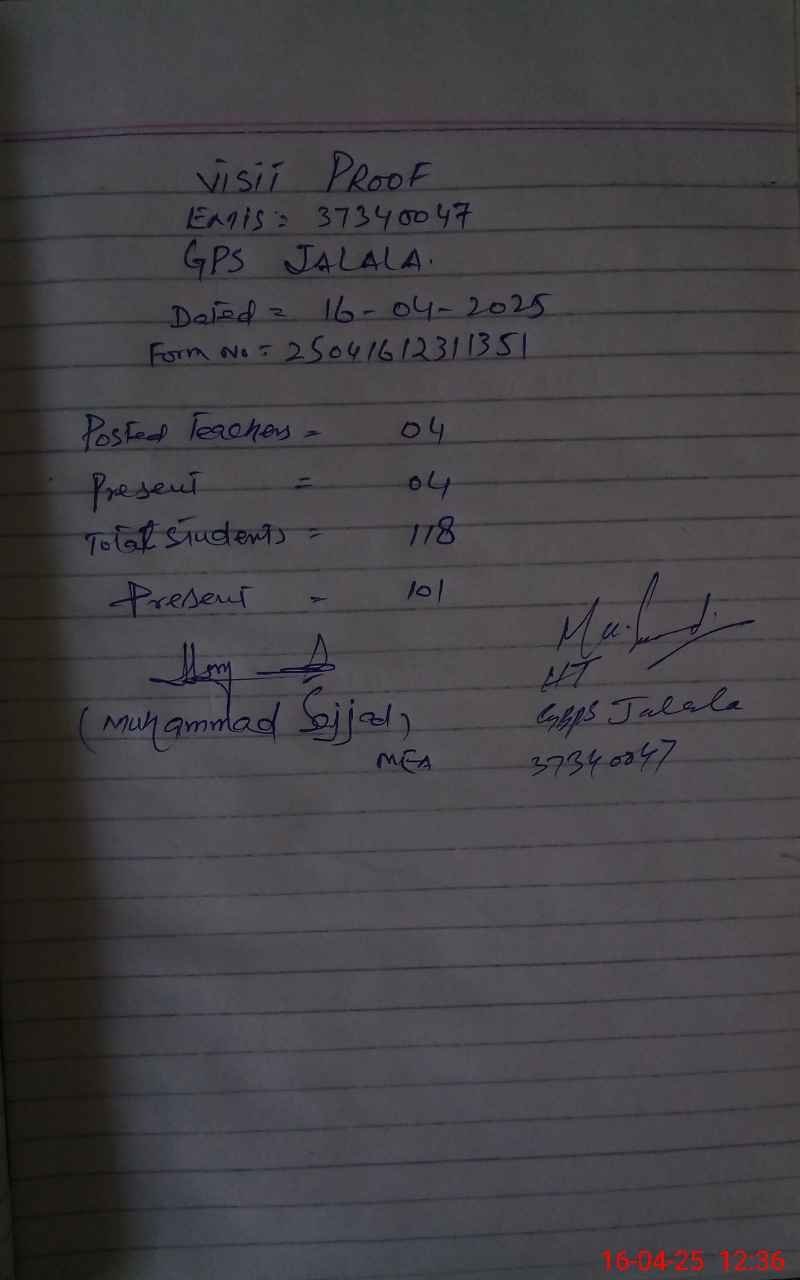 Visit Proof
Emis = 37340047
GPS JALALA.
Dated = 16-04-2025
Form No = 25041612311351
Posted Teachers = 04
Present = 04
Total Students = 118
Present = 101
(Muhammad Sajjad)
MEA
HT
GBPS Jalala
37340047
16-04-25 12:36